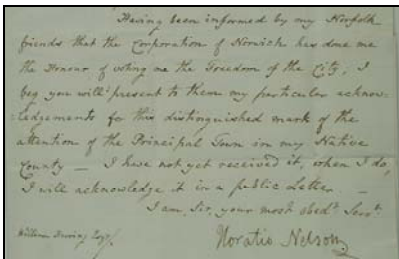 Having been informed by my Norfolk
friends that the Corporation of Norwich has done me
the Honour of voting me the Freedom of the City, I
beg you will present to them my particular acknow-
ledgements for this distinguished mark of the
attention of the Principal Town in my Native
County — I have not yet received it, when I do,
I will acknowledge it in a public Letter —
I am, Sir, your most obedt. Servt.
William Esqr.
Horatio Nelson